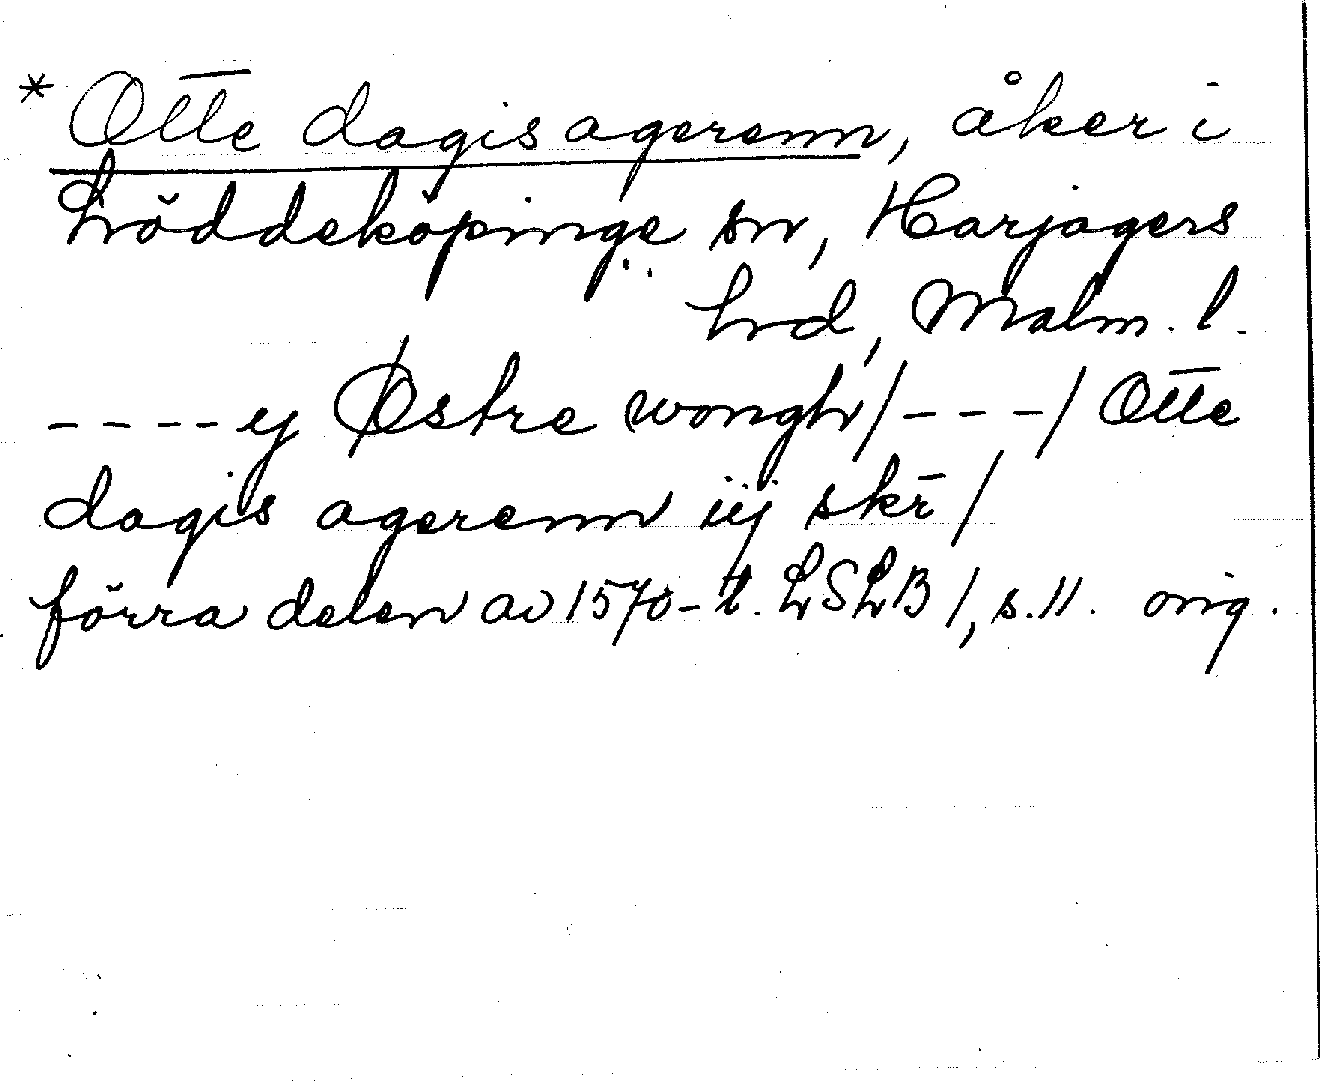 * Otte dagis agerenn, åker i
Löddeköpinge sn, Harjagers
hrd, Malm. l.
----ij Østre wongh/---/Otte
dagis agerenn iij skr̄/
förra delen av 1570-t. LSLB 1, s. 11. orig.